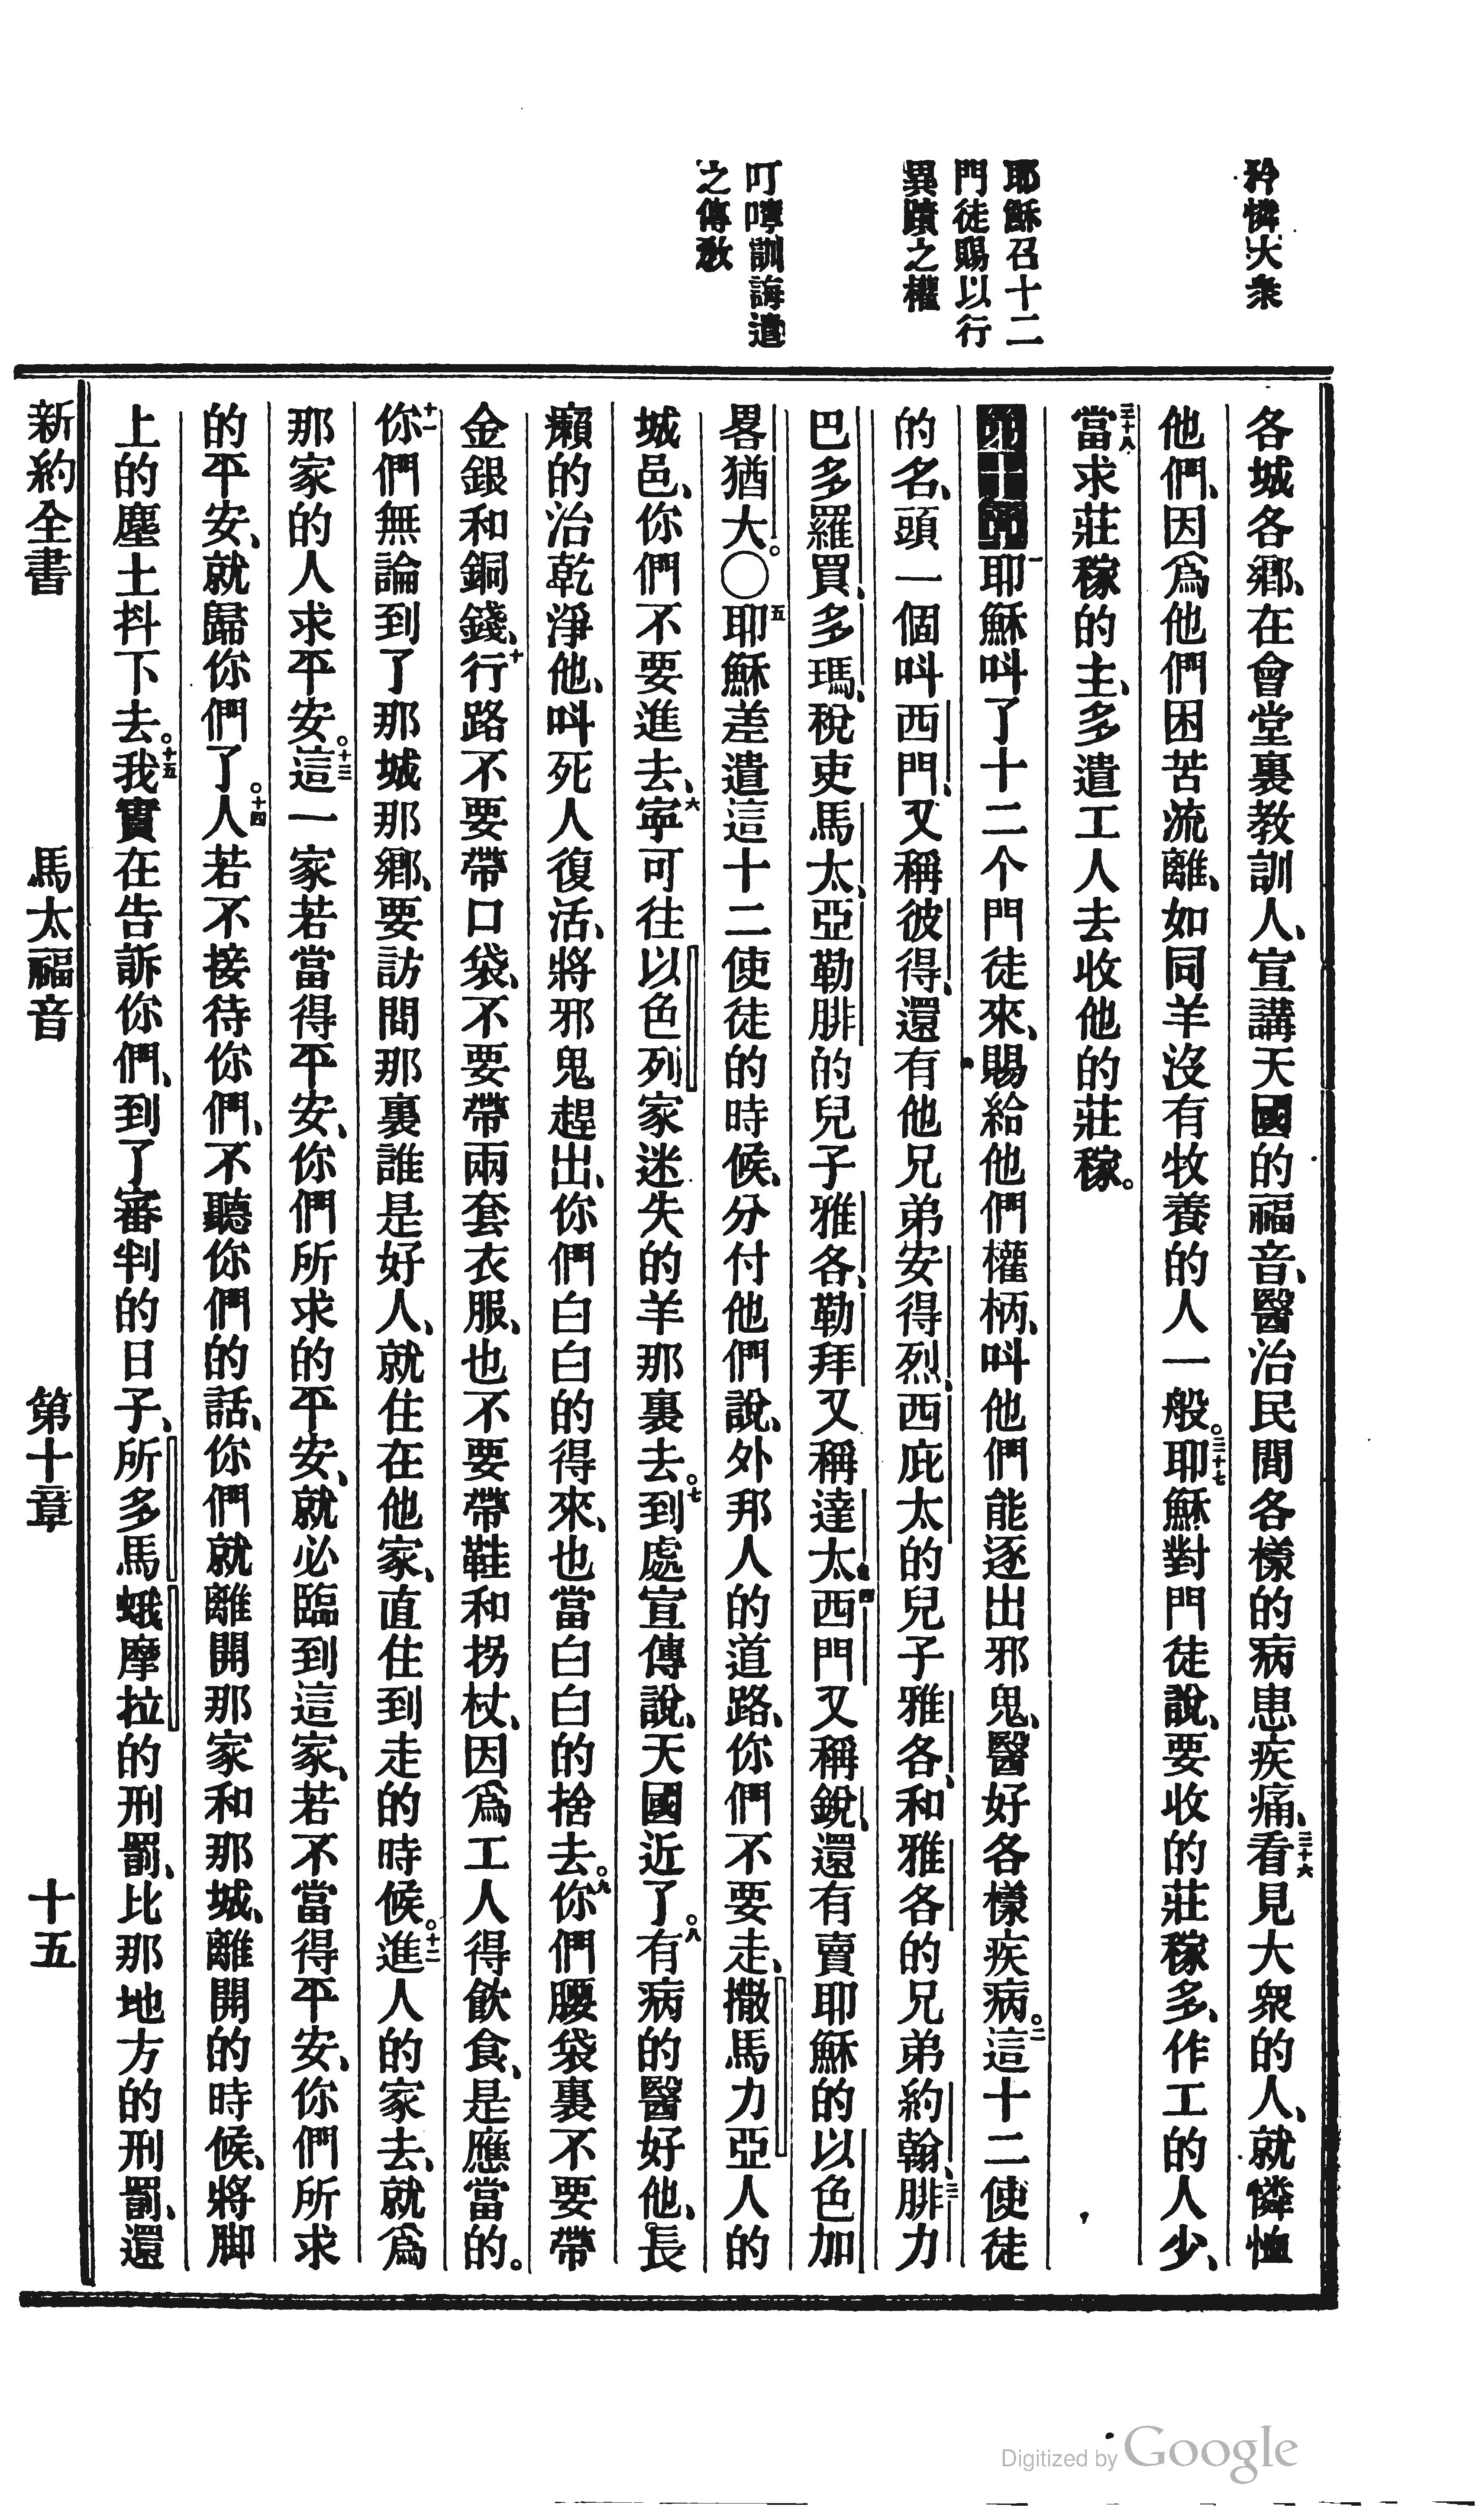 矜憐大衆
耶穌召十二
門徒賜以行
異蹟之權
叮嚀訓誨遣
之傳敎
各城各鄉、在會堂裏教訓人、宣講天國的福音、醫治民間各樣的病患疾痛、三十六看見大衆的人、就憐恤
他們、因爲他們困苦流離、如同羊沒有牧養的人一般。三十七耶穌對門徒說、要收的莊稼多、作工的人少、
三十八當求莊稼的主、多遣工人去收他的莊稼。
第十章一耶穌叫了十二个門徒來、賜給他們權柄、叫他們能逐出邪鬼、醫好各樣疾病。二這十二使徒
的名、頭一個叫西門、又稱彼得、還有他兄弟安得烈、西庇太的兒子雅各、和雅各的兄弟約翰、三腓力
巴多羅買、多瑪、稅吏馬太、亞勒腓的兒子雅各、勒拜又稱達太、四西門又稱銳、還有賣耶穌的以色加
畧猶大。〇五耶穌差遣這十二使徒的時候、分付他們說、外邦人的道路、你們不要走、撒馬力亞人的
城邑、你們不要進去、六寧可往以色列家迷失的羊那裏去。七到處宣傳說、天國近了。八有病的醫好他、長
癩的治乾淨他、叫死人復活、將邪鬼趕出、你們白白的得來、也當白白的捨去。九你們腰袋裏不要帶
金銀和銅錢、十行路不要帶口袋、不要帶兩套衣服、也不要帶鞋和拐杖、因爲工人得飲食、是應當的。
十一你們無論到了那城那鄉、要訪問那裏誰是好人、就住在他家、直住到走的時候。十二進人的家去、就爲
那家的人求平安。十三這一家若當得平安、你們所求的平安、就必臨到這家、若不當得平安、你們所求
的平安、就歸你們了。十四人若不接待你們、不聽你們的話、你們就離開那家和那城、離開的時候、將脚
上的塵土抖下去。十五我實在告訴你們、到了審判的日子、所多馬蛾摩拉的刑罰、比那地方的刑罰、還
新約全書 馬太福音 第十章 十五
Digitized by Google